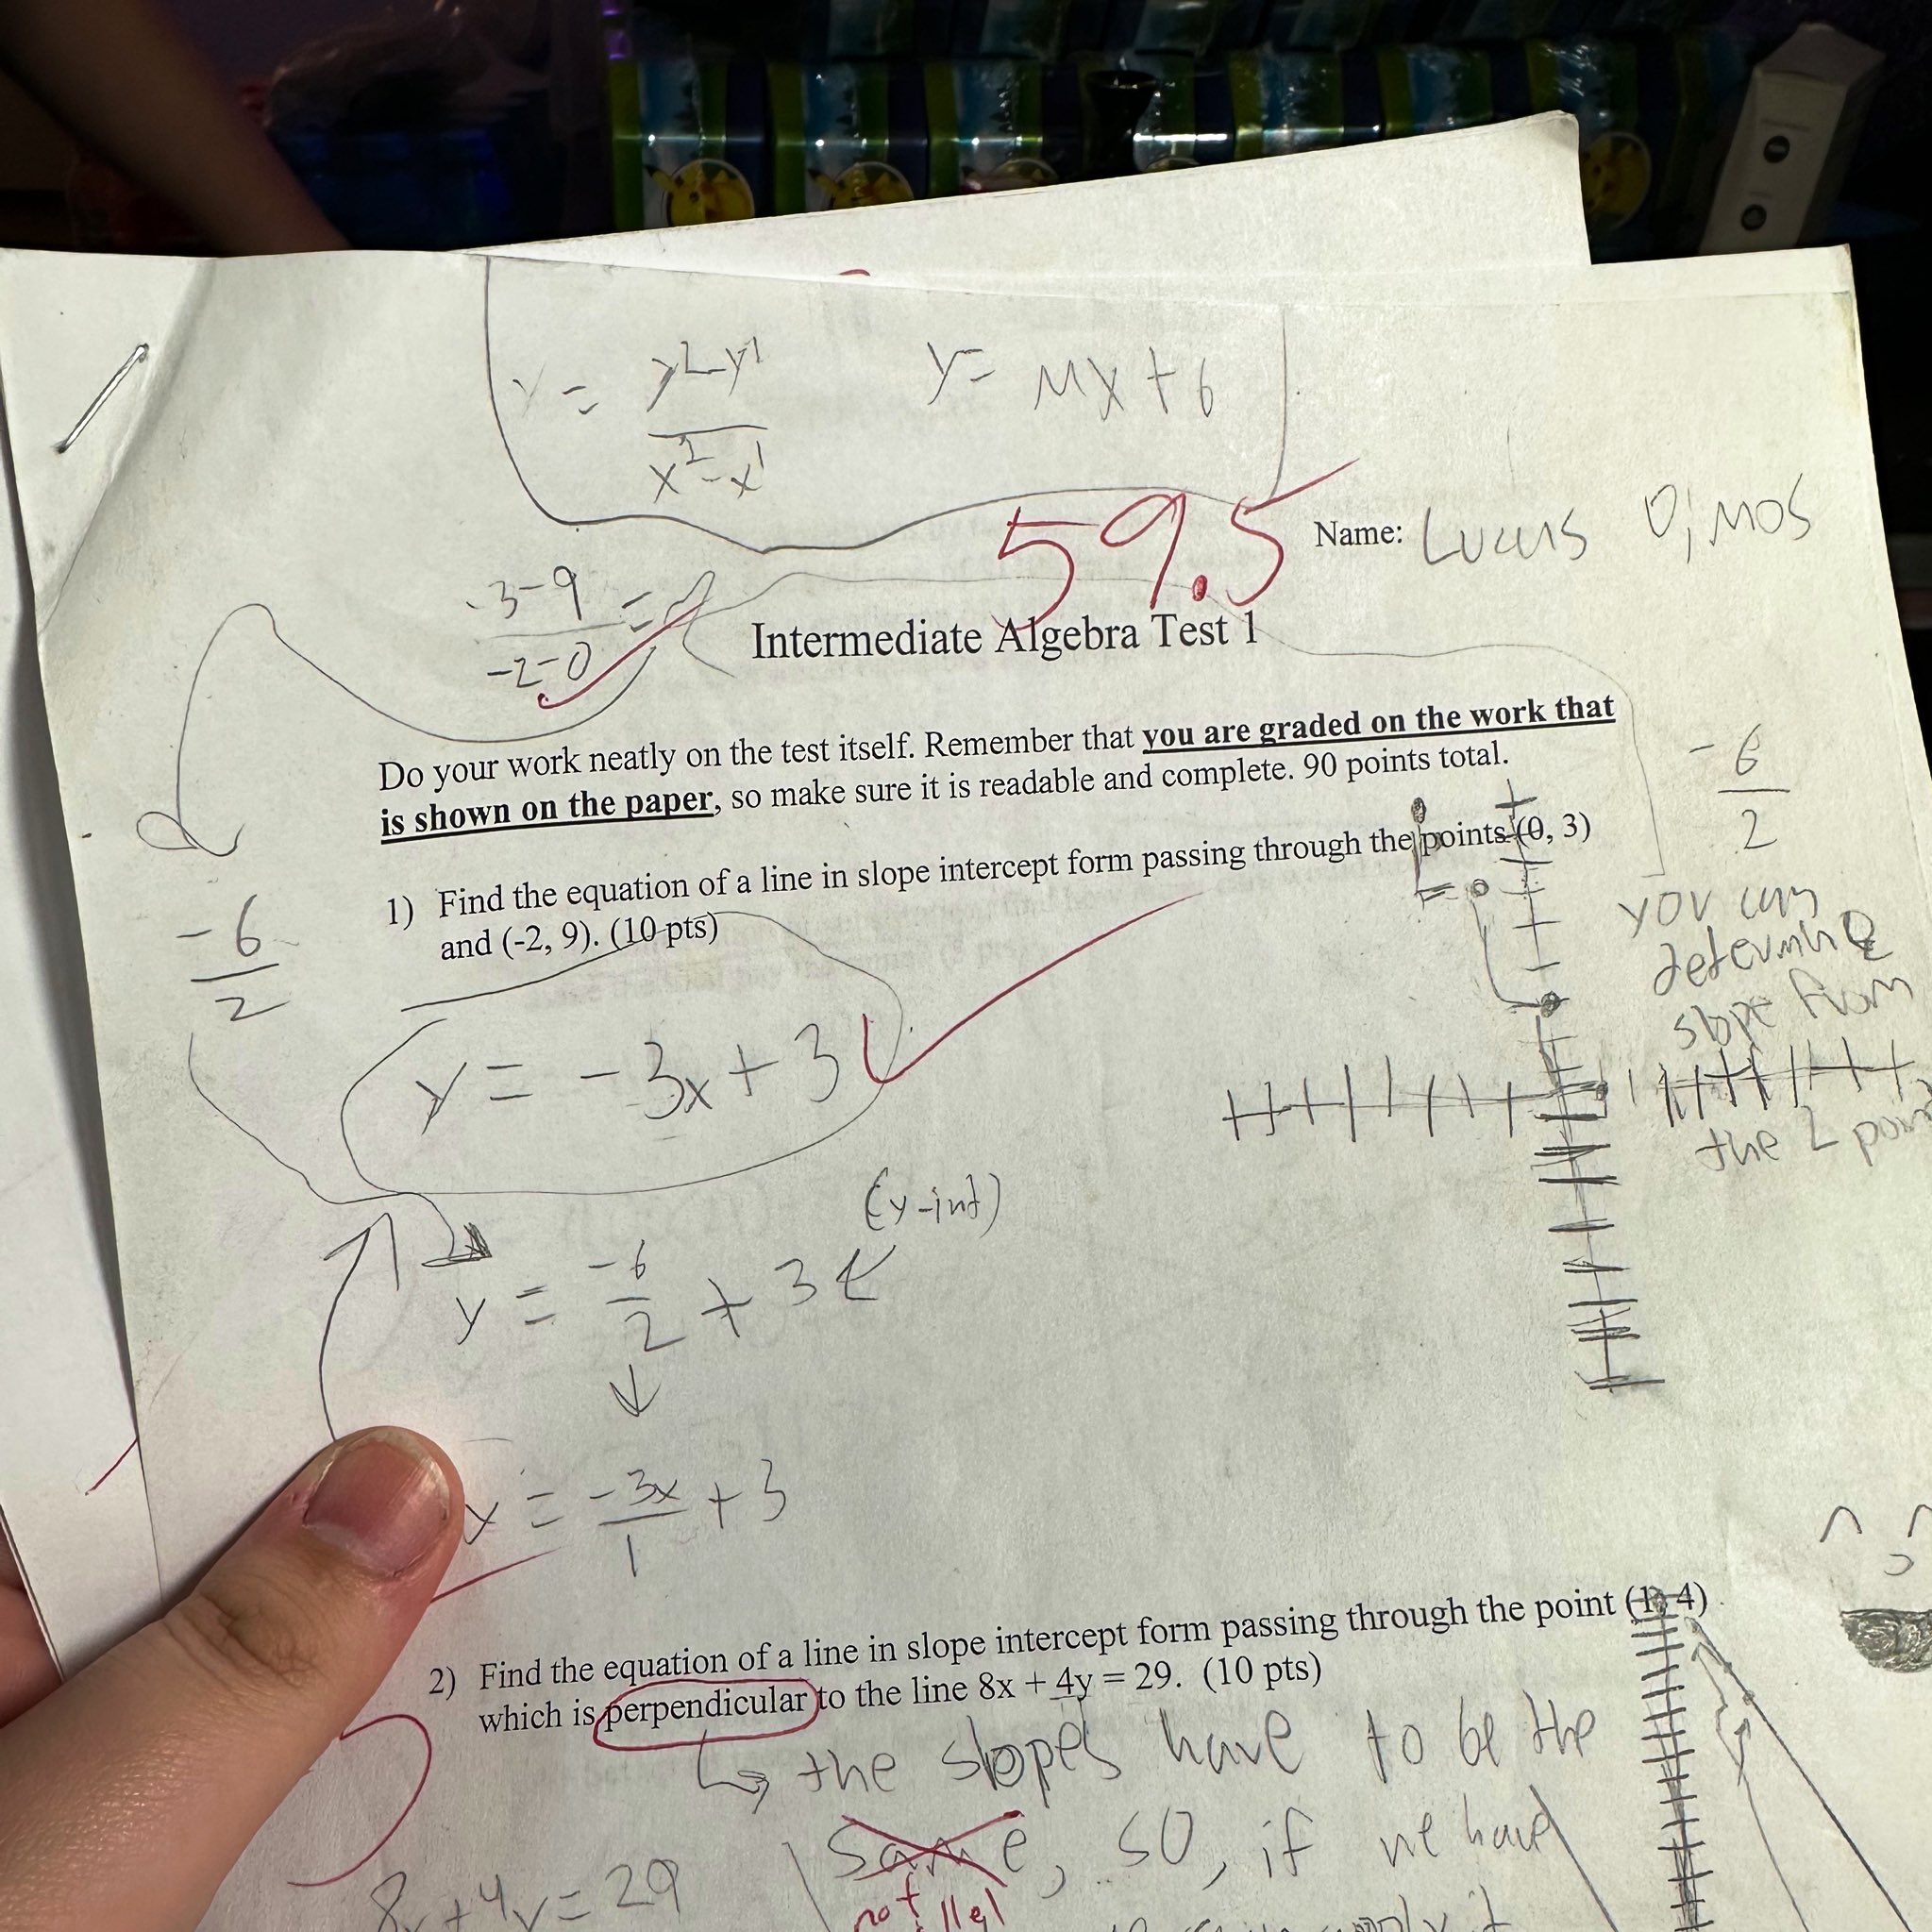 y2-y1
x2-x1
y= mx+b
59.5
Name: Lucus Olmos
3-9
-2-0
=
Intermediate Algebra Test 1
Do your work neatly on the test itself. Remember that you are graded on the work that
is shown on the paper, so make sure it is readable and complete. 90 points total.
1) Find the equation of a line in slope intercept form passing through the points (0, 3)
and (-2, 9). (10 pts)
-6
2
-6
2
you can
determine
slope from
the 2
y = -3x+3
(y-int)
y = -6/2 + 3
= -3x/1 + 3
2) Find the equation of a line in slope intercept form passing through the point (1, 4)
which is perpendicular to the line 8x + 4y = 29. (10 pts)
the slopes have to be the
same, so, if we have
not
8x+4y=29